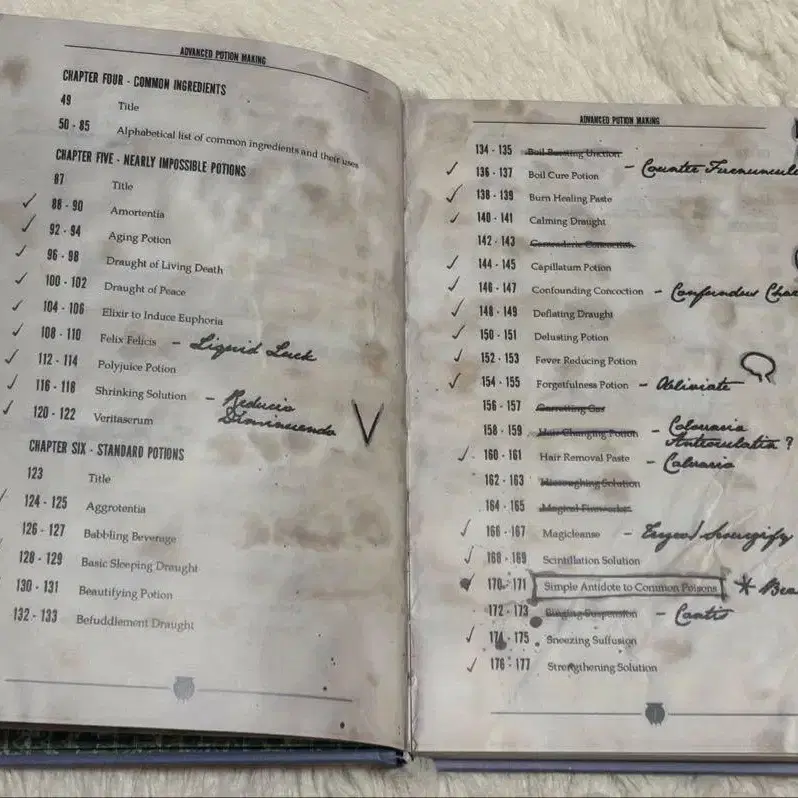 ADVANCED POTION MAKING
CHAPTER FOUR - COMMON INGREDIENTS
49 Title
50 - 85 Alphabetical list of common ingredients and their uses
CHAPTER FIVE - NEARLY IMPOSSIBLE POTIONS
87 Title
88 - 90 Amortentia
92 - 94 Aging Potion
96 - 98 Draught of Living Death
100 - 102 Draught of Peace
104 - 106 Elixir to Induce Euphoria
108 - 110 Felix Felicis - Liquid Luck
112 - 114 Polyjuice Potion
116 - 118 Shrinking Solution - Reducio
Diminuendo
120 - 122 Veritaserum
CHAPTER SIX - STANDARD POTIONS
123 Title
124 - 125 Aggrotentia
126 - 127 Babbling Beverage
128 - 129 Basic Sleeping Draught
130 - 131 Beautifying Potion
132 - 133 Befuddlement Draught
ADVANCED POTION MAKING
134 - 135 Boil Bursting Unction
136 - 137 Boil Cure Potion - Counter
138 - 139 Burn Healing Paste
140 - 141 Calming Draught
142 - 143 Camaraderie Concoction
144 - 145 Capillatum Potion
146 - 147 Confounding Concoction - Confundus
148 - 149 Deflating Draught
150 - 151 Delusting Potion
152 - 153 Fever Reducing Potion
154 - 155 Forgetfulness Potion - Obliviate
156 - 157 Garrotting Gas
158 - 159 Hair Changing Potion - Calvaria
?
160 - 161 Hair Removal Paste - Calvario
162 - 163 Solution
164 - 165 Magical
166 - 167 Magicleanse - Tergeo/Scourgify
168 - 169 Scintillation Solution
170 - 171 Simple Antidote to Common Poisons *
172 - 173 Singing Suspension - Cantis
174 - 175 Sneezing Suffusion
176 - 177 Strengthening Solution